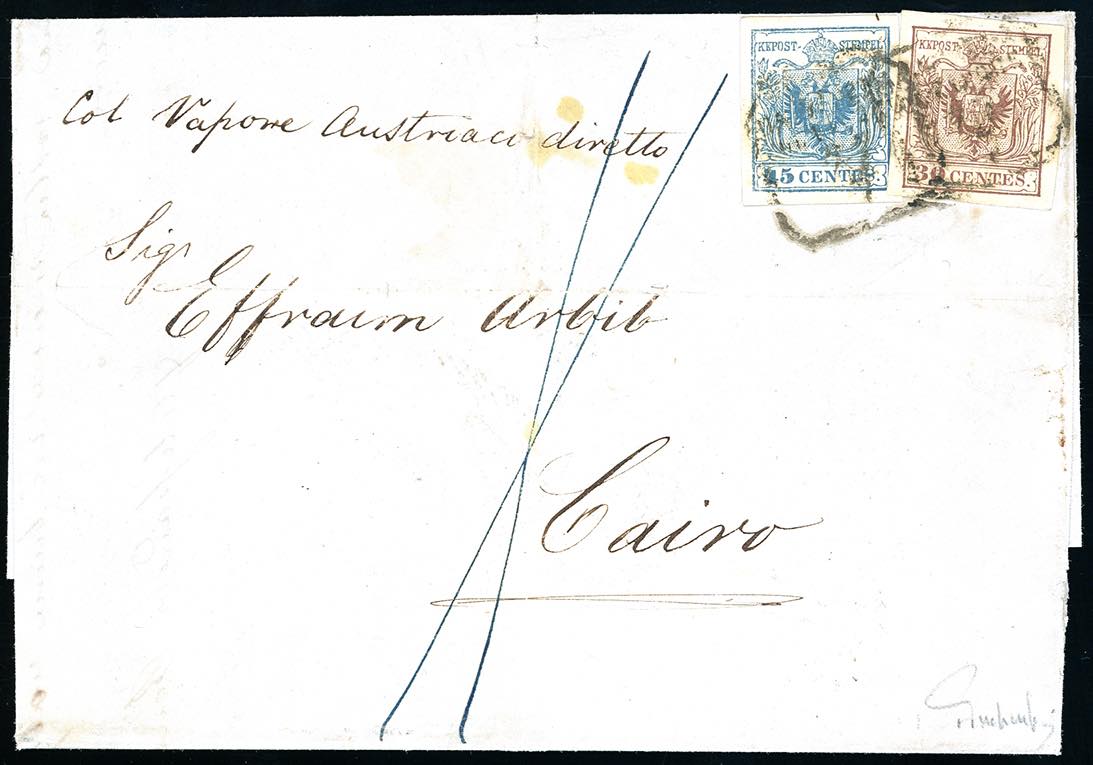 KKPOST-STEMPEL
45 CENTES.
KKPOST-STEMPEL
30 CENTES.
Col Vapore Austriaci diretto
Sigr
Effraim Arbib
Cairo